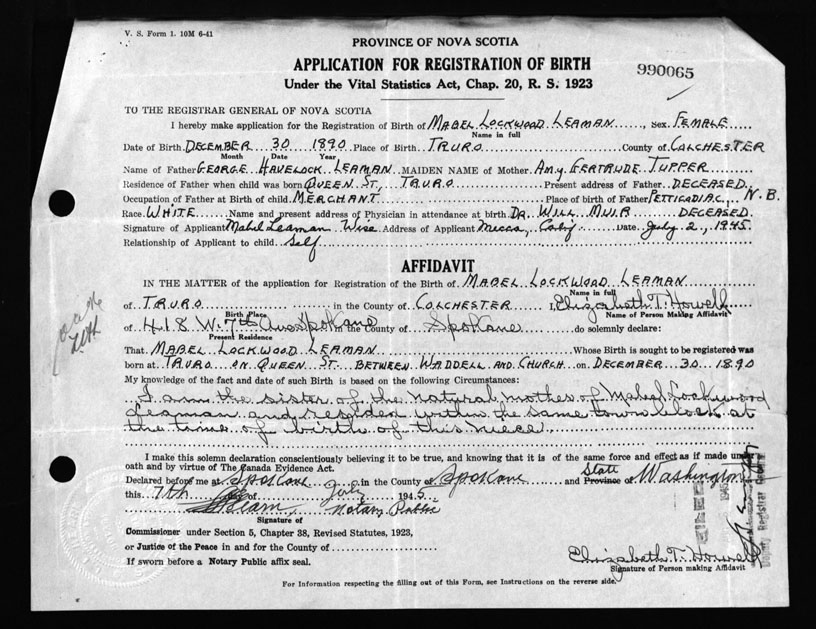 V. S. Form 1. 10M 6-41
PROVINCE OF NOVA SCOTIA
APPLICATION FOR REGISTRATION OF BIRTH
990065
Under the Vital Statistics Act, Chap. 20, R. S. 1923
TO THE REGISTRAR GENERAL OF NOVA SCOTIA
I hereby make application for the Registration of Birth of MABEL LOCKWOOD LEAMAN Sex FEMALE
Name in full
Date of Birth DECEMBER 30 1890 Place of Birth TRURO County of COLCHESTER
Month Date Year
Name of Father GEORGE HAVELOCK LEAMAN MAIDEN NAME of Mother AMY GERTRUDE TUPPER
Residence of Father when child was born QUEEN ST, TRURO Present address of Father DECEASED
Occupation of Father at Birth of child MERCHANT Place of birth of Father PETTICADIAC, N.B.
Race WHITE Name and present address of Physician in attendance at birth DR. WILL MUIR DECEASED
Signature of Applicant Mabel Leaman Wise Address of Applicant Mecca, Calif Date July 2, 1945
Relationship of Applicant to child Self
AFFIDAVIT
IN THE MATTER of the application for Registration of the Birth of MABEL LOCKWOOD LEAMAN
Name in full
of TRURO in the County of COLCHESTER I, Elizabeth T. Howell
Birth Place Name of Person Making Affidavit
of 418 W. 7th Ave Spokane in the County of Spokane do solemnly declare:
Present Residence
That MABEL LOCKWOOD LEAMAN Whose Birth is sought to be registered was
born at TRURO ON QUEEN ST. BETWEEN WADDELL AND CHURCH on DECEMBER 30 1890
My knowledge of the fact and date of such Birth is based on the following Circumstances:
I am the sister of the natural mother of Mabel Lockwood
Leaman and resided within the same town block at
the time of birth of this niece
I make this solemn declaration conscientiously believing it to be true, and knowing that it is of the same force and effect as if made under
oath and by virtue of The Canada Evidence Act.
Declared before me at Spokane in the County of Spokane and Province of State Washington
this 7th day of July 1945
Notary Public
Signature of
Commissioner under Section 5, Chapter 38, Revised Statutes, 1923,
or Justice of the Peace in and for the County of
If sworn before a Notary Public affix seal.
Elizabeth T. Howell
Signature of Person making Affidavit
For Information respecting the filling out of this Form, see Instructions on the reverse side.
Deputy Registrar